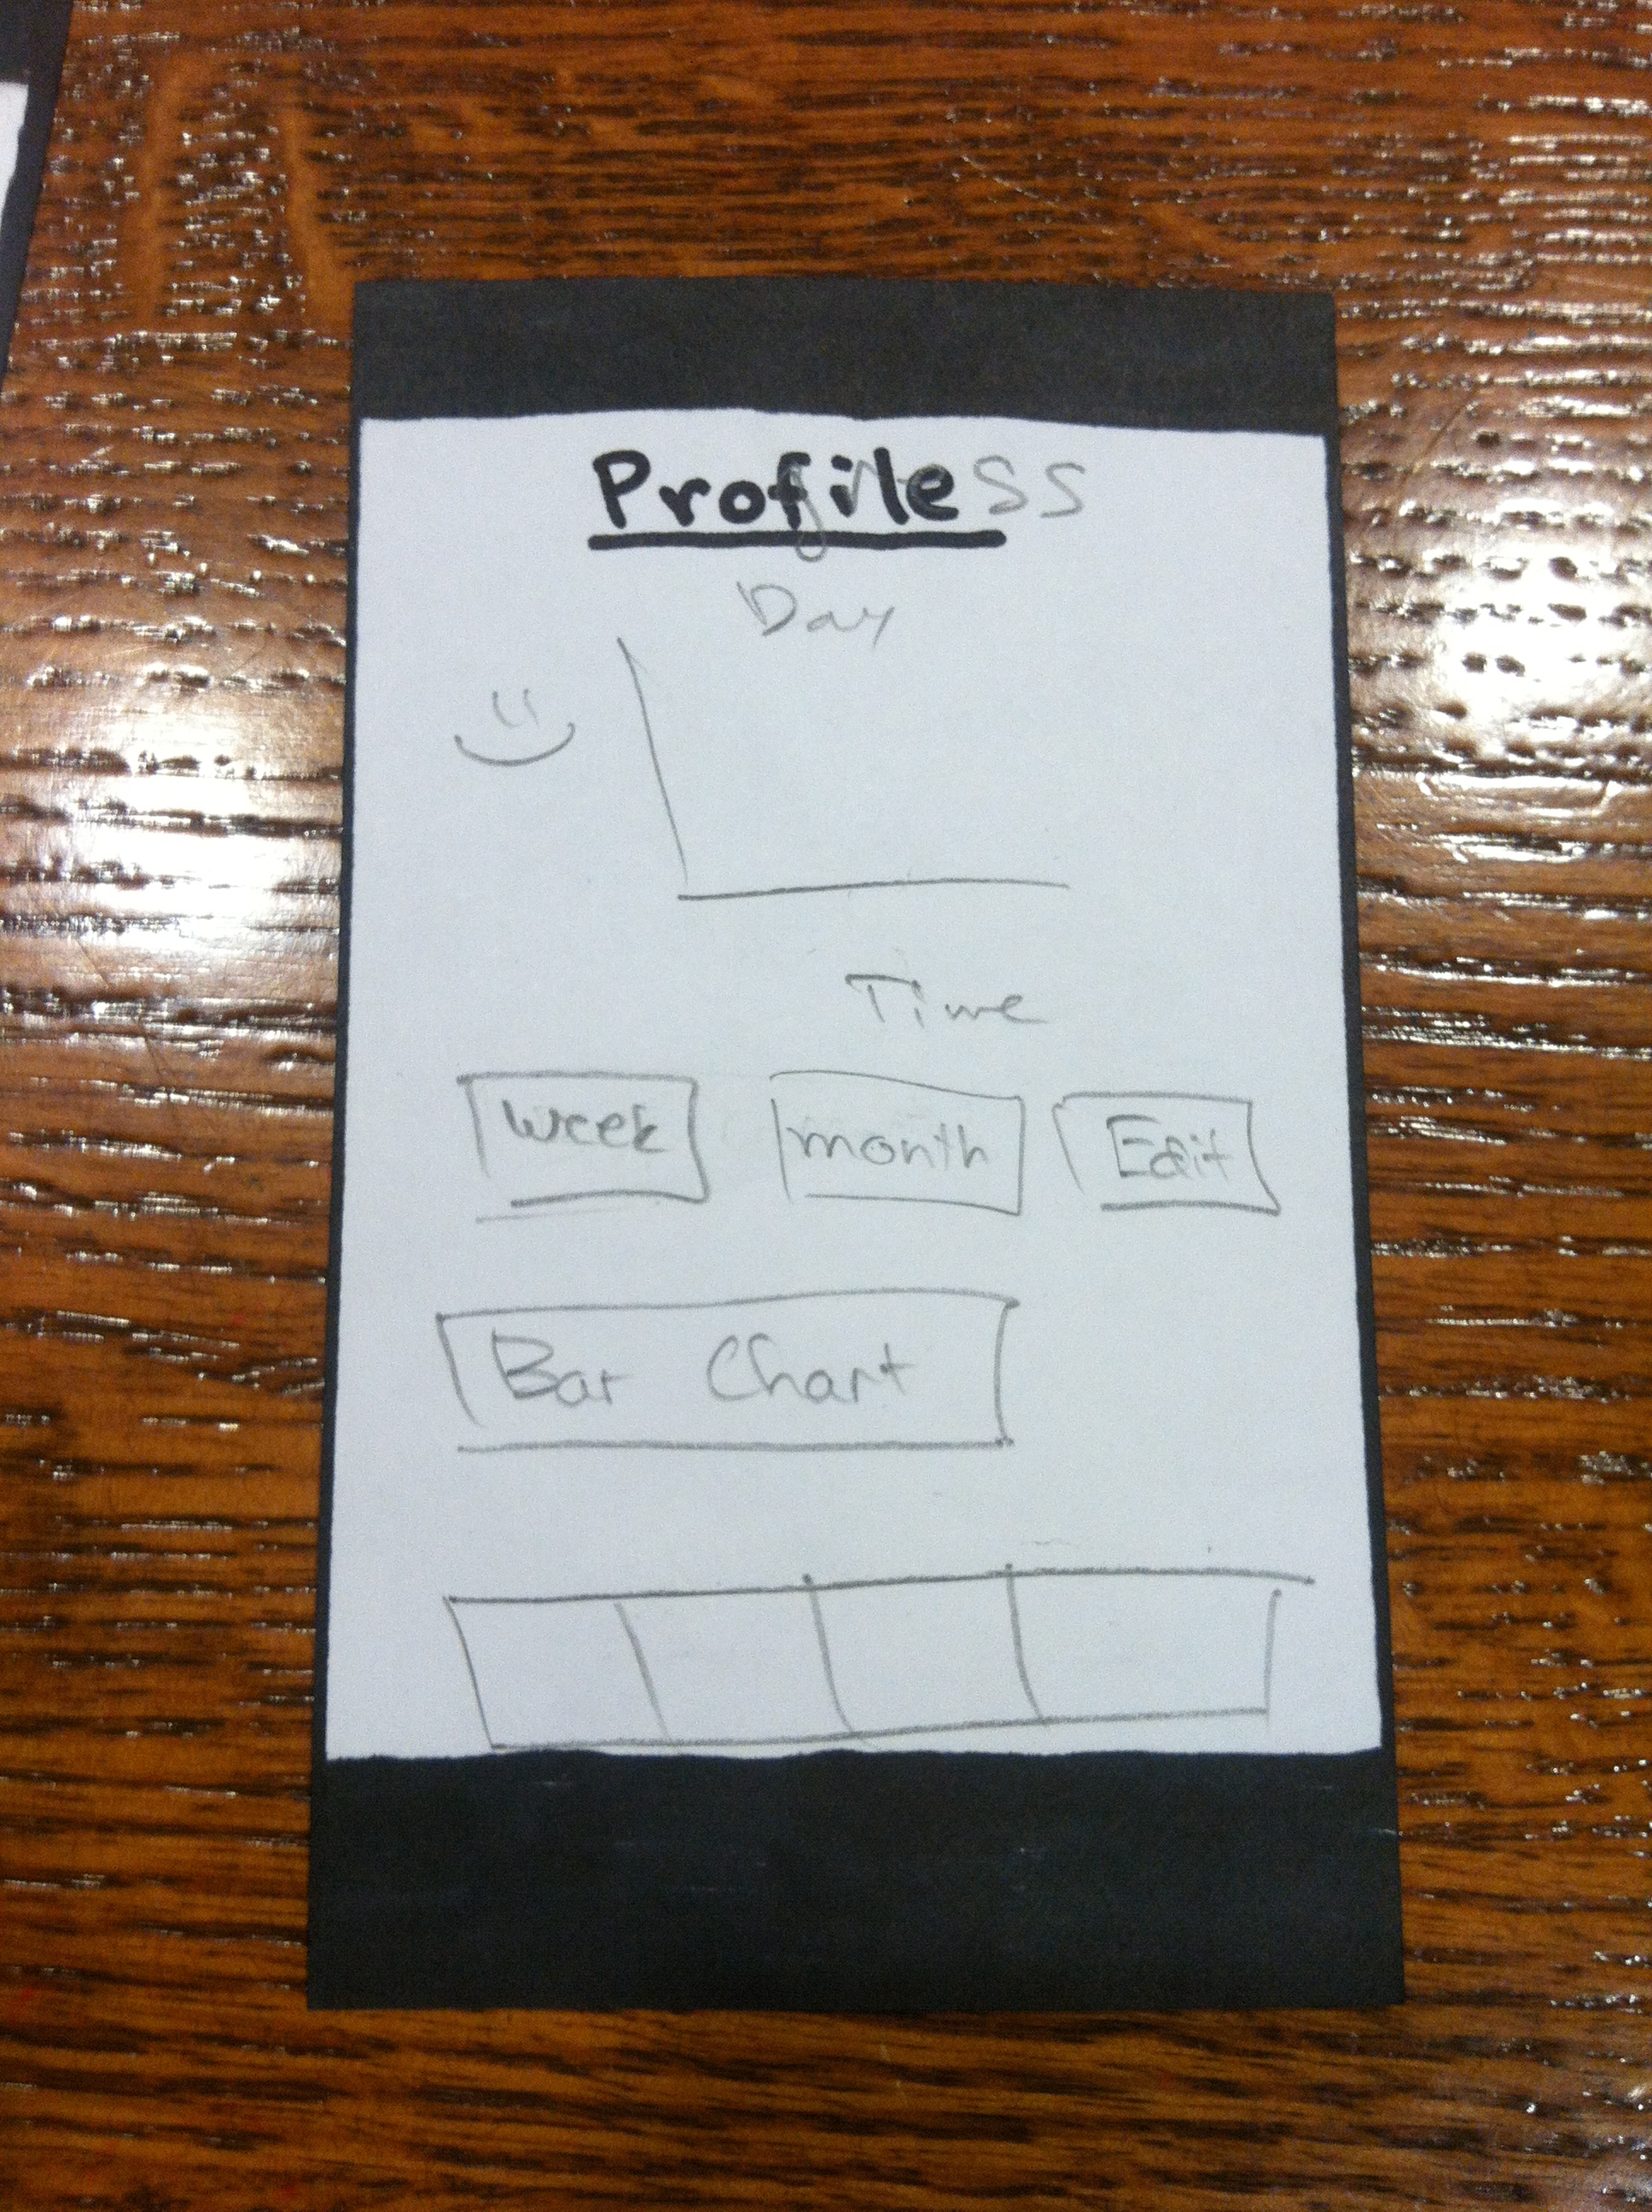 Profile
Day
Time
week month Edit
Bar Chart